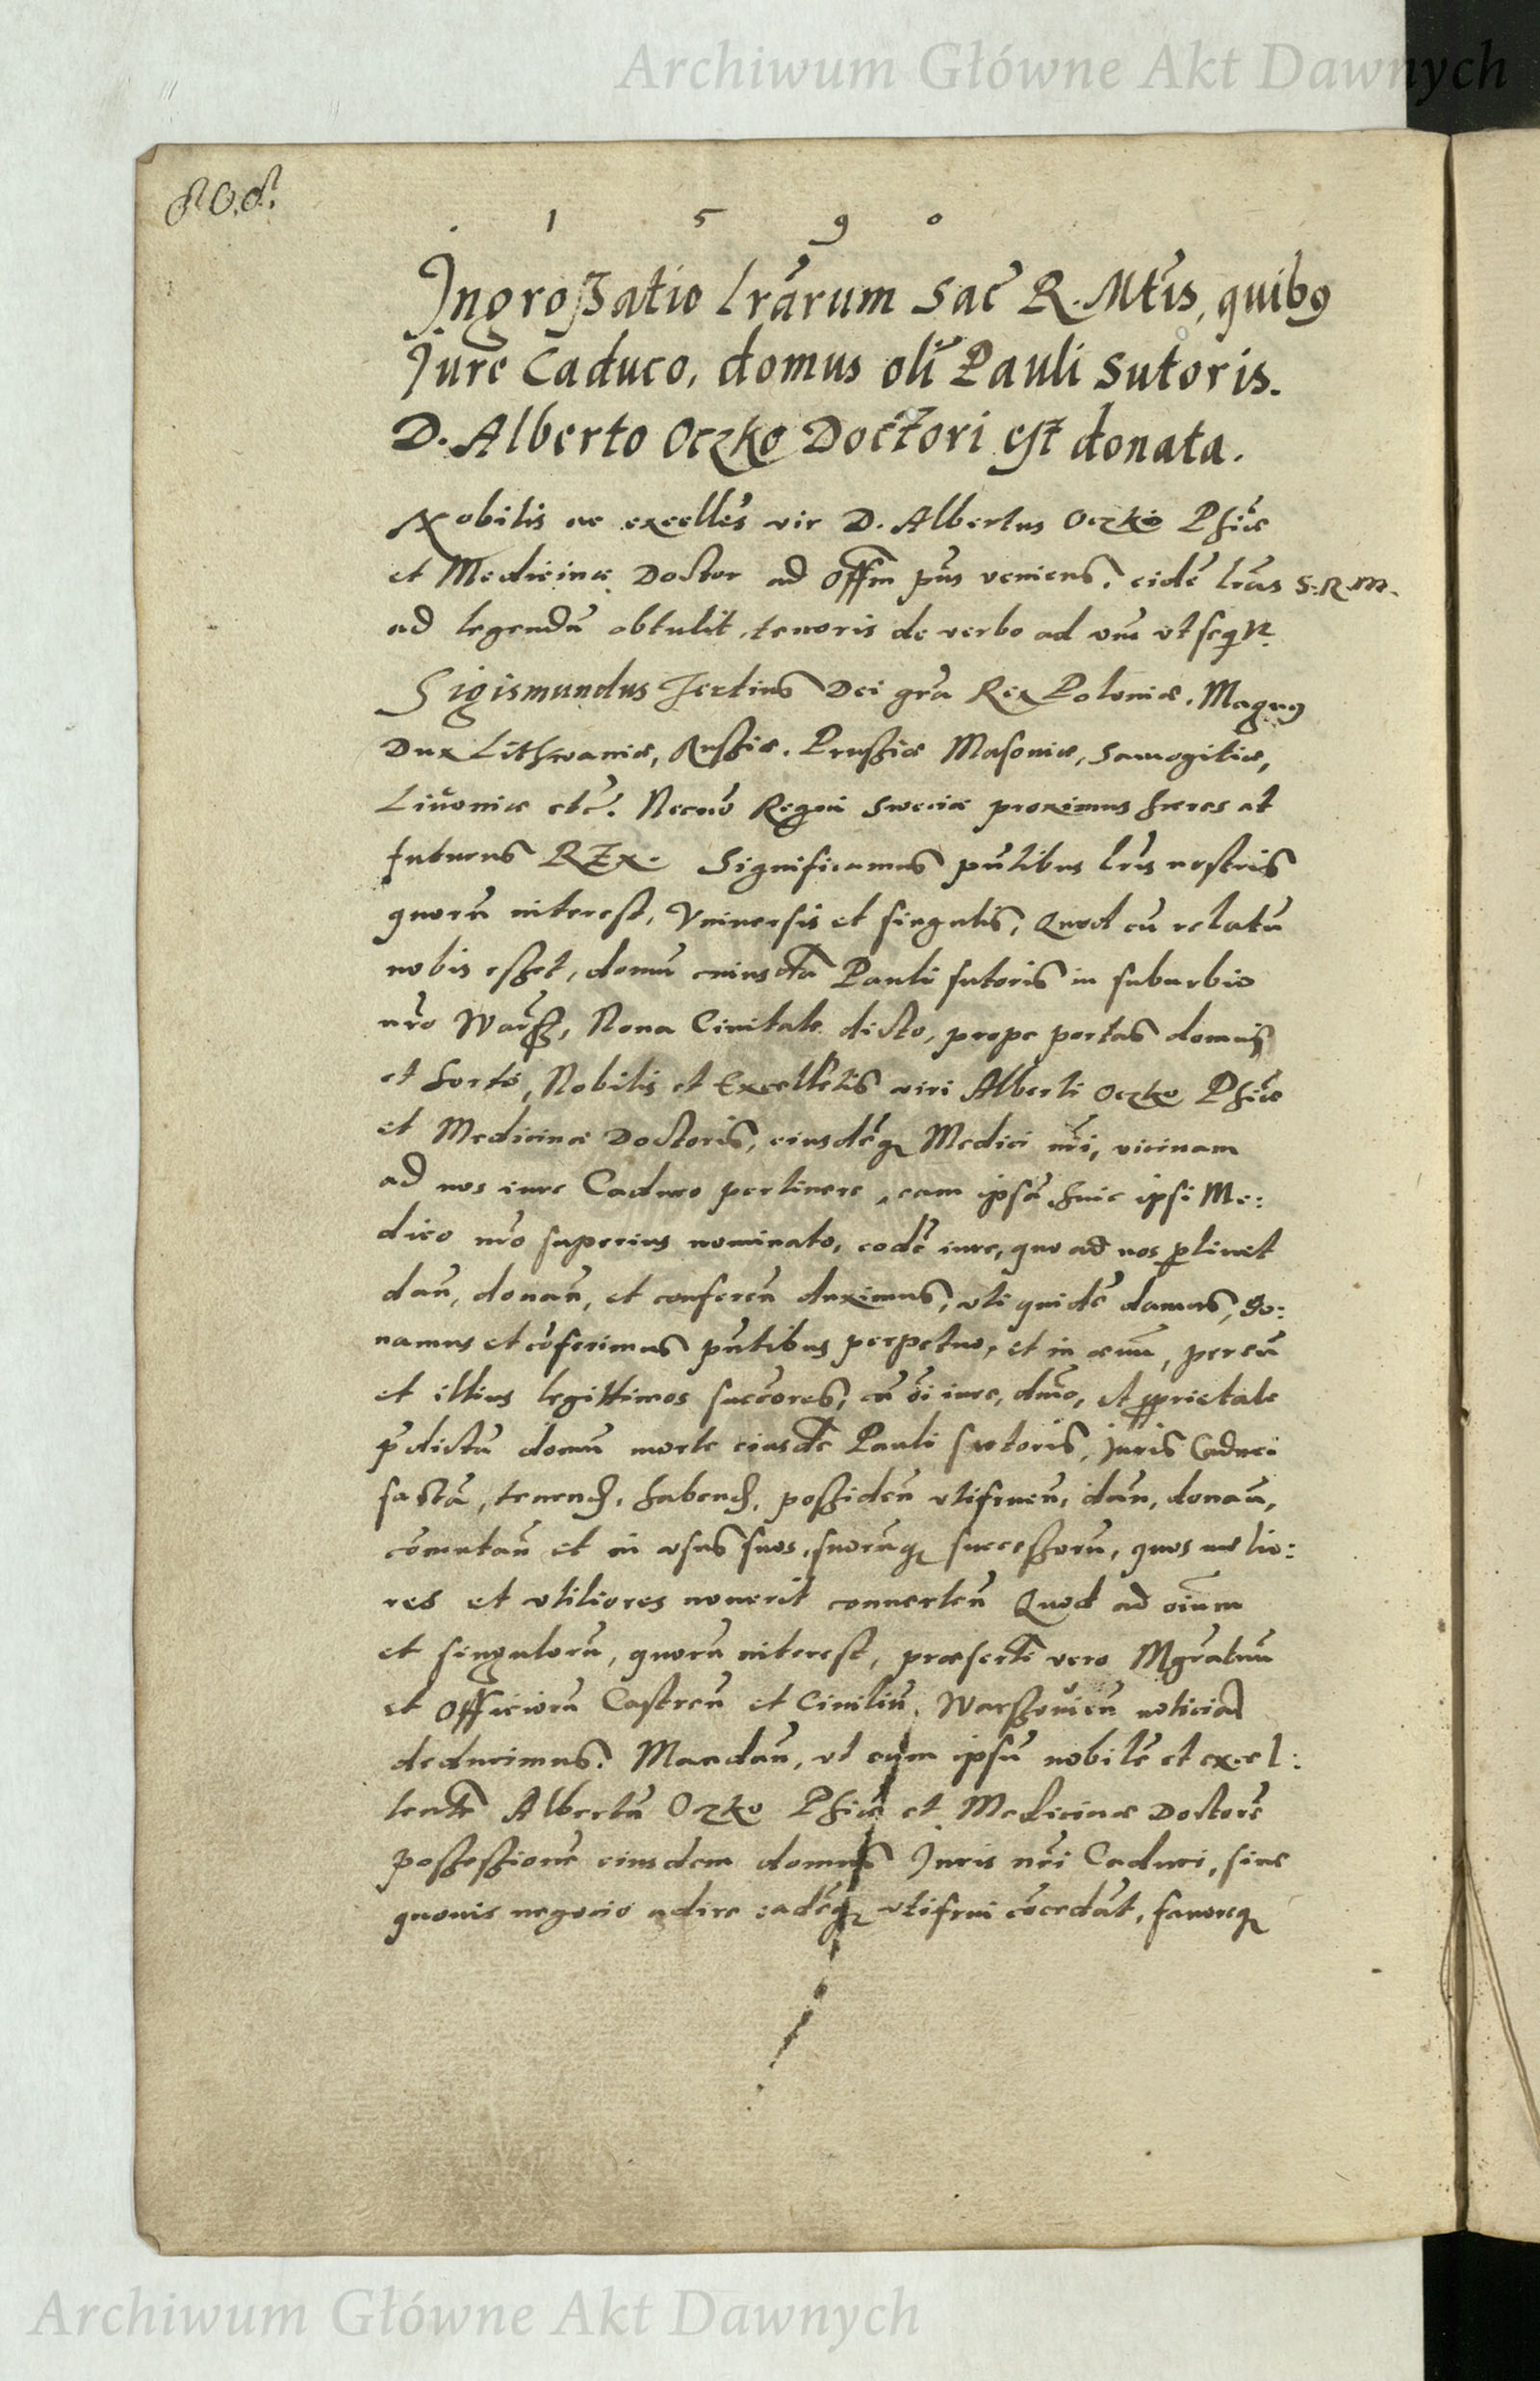 Archiwum Główne Akt Dawnych
1 5 9 0
Ingroßatio lr̃arum Sac̃ R. Mt̃is, quibꝯ
Jure Caduco, domus olĩ Pauli Sutoris.
D. Alberto Oczko Doctori est donata.
Nobilis ac excellẽs vir D. Albertus Oczko Phiæ
et Medicinæ Doctor ad Offm pñs veniens, eidẽ lr̃as S. R. M.
ad legendũ obtulit, tenoris de verbo ad vm̃ vt seqr̃.
Sigismundus Tertius Dei gr̃a Rex Poloniæ, Magnꝯ
Dux Lithwaniæ, Rußiæ, Prußiæ Masoviæ, Samogitiæ,
Livoniæ etc̃. Necnõ Regni Sweciæ proximus hæres at
futurus REx. Significamus pñtibus lr̃is nostris
quorũ interest, Vniversis et singulis, Quod cũ relatũ
nobis eßet, domũ cuiusdã Pauli sutoris in suburbio
nr̃o Warß, Noua Ciuitate dicto, prope portas domus
et horti, Nobilis et Excellẽtis viri Alberti Oczko Phiæ
et Medicinæ Doctoris, eiusdẽqꝫ Medici nr̃i, vicinam
ad nos iure Caduco pertinere, eam ipsã huic ipsi Me:
dico nr̃o superius nominato, eodẽ iure, quo ad nos ꝑtinet
dañ, donañ, et confereñ duximus, vti quidẽ damus, do:
namus et cõferimus pñtibus perpetuo, et in æuũ, per eũ
et illius legittimos succores, cũ õi iure, dñio, et ꝓprietate
p̃dictã domũ morte eiusdẽ Pauli sutoris, Juris Caduci
factã, tenend, habend, poßideñ vtifrueñ, dañ, donañ,
com̃utañ et in vsus suos, suorũqꝫ succeßorũ, quos melio:
res et vtiliores nouerit conuerteñ Quod ad oim̃m
et singulorũ, quorũ interest, præsertĩ vero Mgr̃atuũ
et Officiorũ Castreñ et Ciuiliũ, Warßovieñ noticiã
deducimus. Mandañ, vt eum ipsũ nobilẽ et excel:
lentẽ Albertũ Oczko Phiæ et Medicinæ Doctorẽ
poßeßionẽ eiusdem domus Juris nr̃i Caduci, sine
quouis negocio adire eadẽqꝫ vtifrui cõcedãt, faueretqꝫ
Archiwum Główne Akt Dawnych